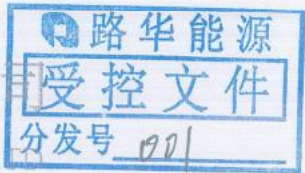 路华能源
受控文件
分发号 001